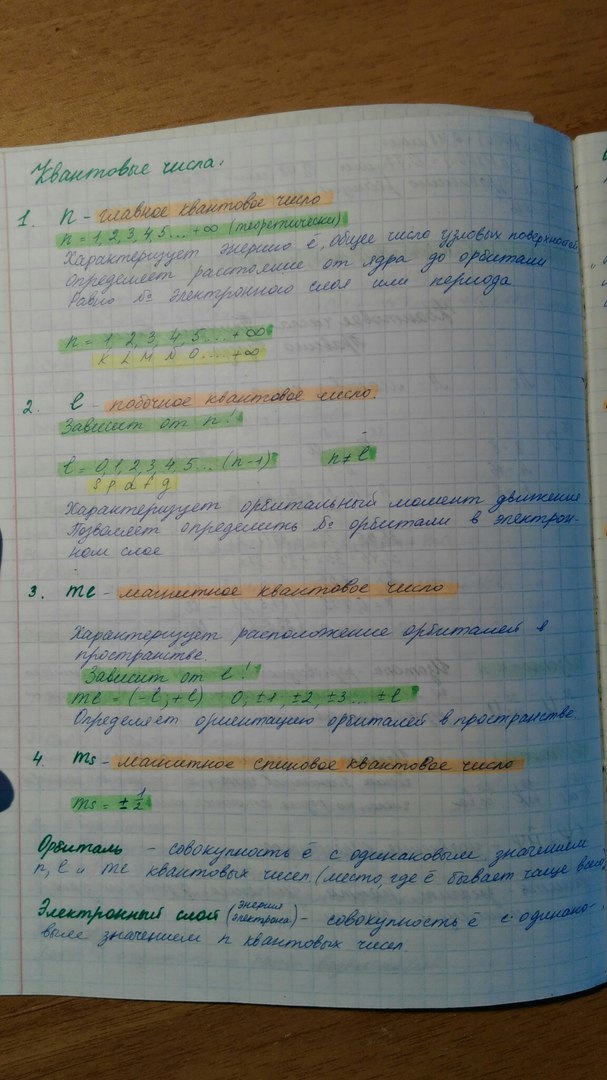 Квантовые числа.
1. n - главное квантовое число
n = 1, 2, 3, 4, 5... +∞ (теоретически)
Характеризует энергию ē, общее число узловых поверхностей
Определяет расстояние от ядра до орбитали
Равно № электронного слоя или периода
n = 1, 2, 3, 4, 5... +∞
K L M N O... +∞
2. l - побочное квантовое число.
Зависит от n!
l = 0, 1, 2, 3, 4, 5... (n-1) n ≠ l
s p d f g
Характеризует орбитальный момент движения
Позволяет определить № орбитали в электрон-
ном слое
3. ml - магнитное квантовое число
Характеризует расположение орбиталей в
пространстве.
Зависит от l!
ml = (-l, +l) 0, ±1, ±2, ±3... ±l
Определяет ориентацию орбиталей в пространстве.
4. ms - магнитное спиновое квантовое число
ms = ± 1/2
Орбиталь - совокупность ē с одинаковым значением
n, l и ml квантовых чисел (место, где ē бывает чаще всего)
Электронный слой (энергия электрона) - совокупность ē с одина-
вым значением n квантовых чисел